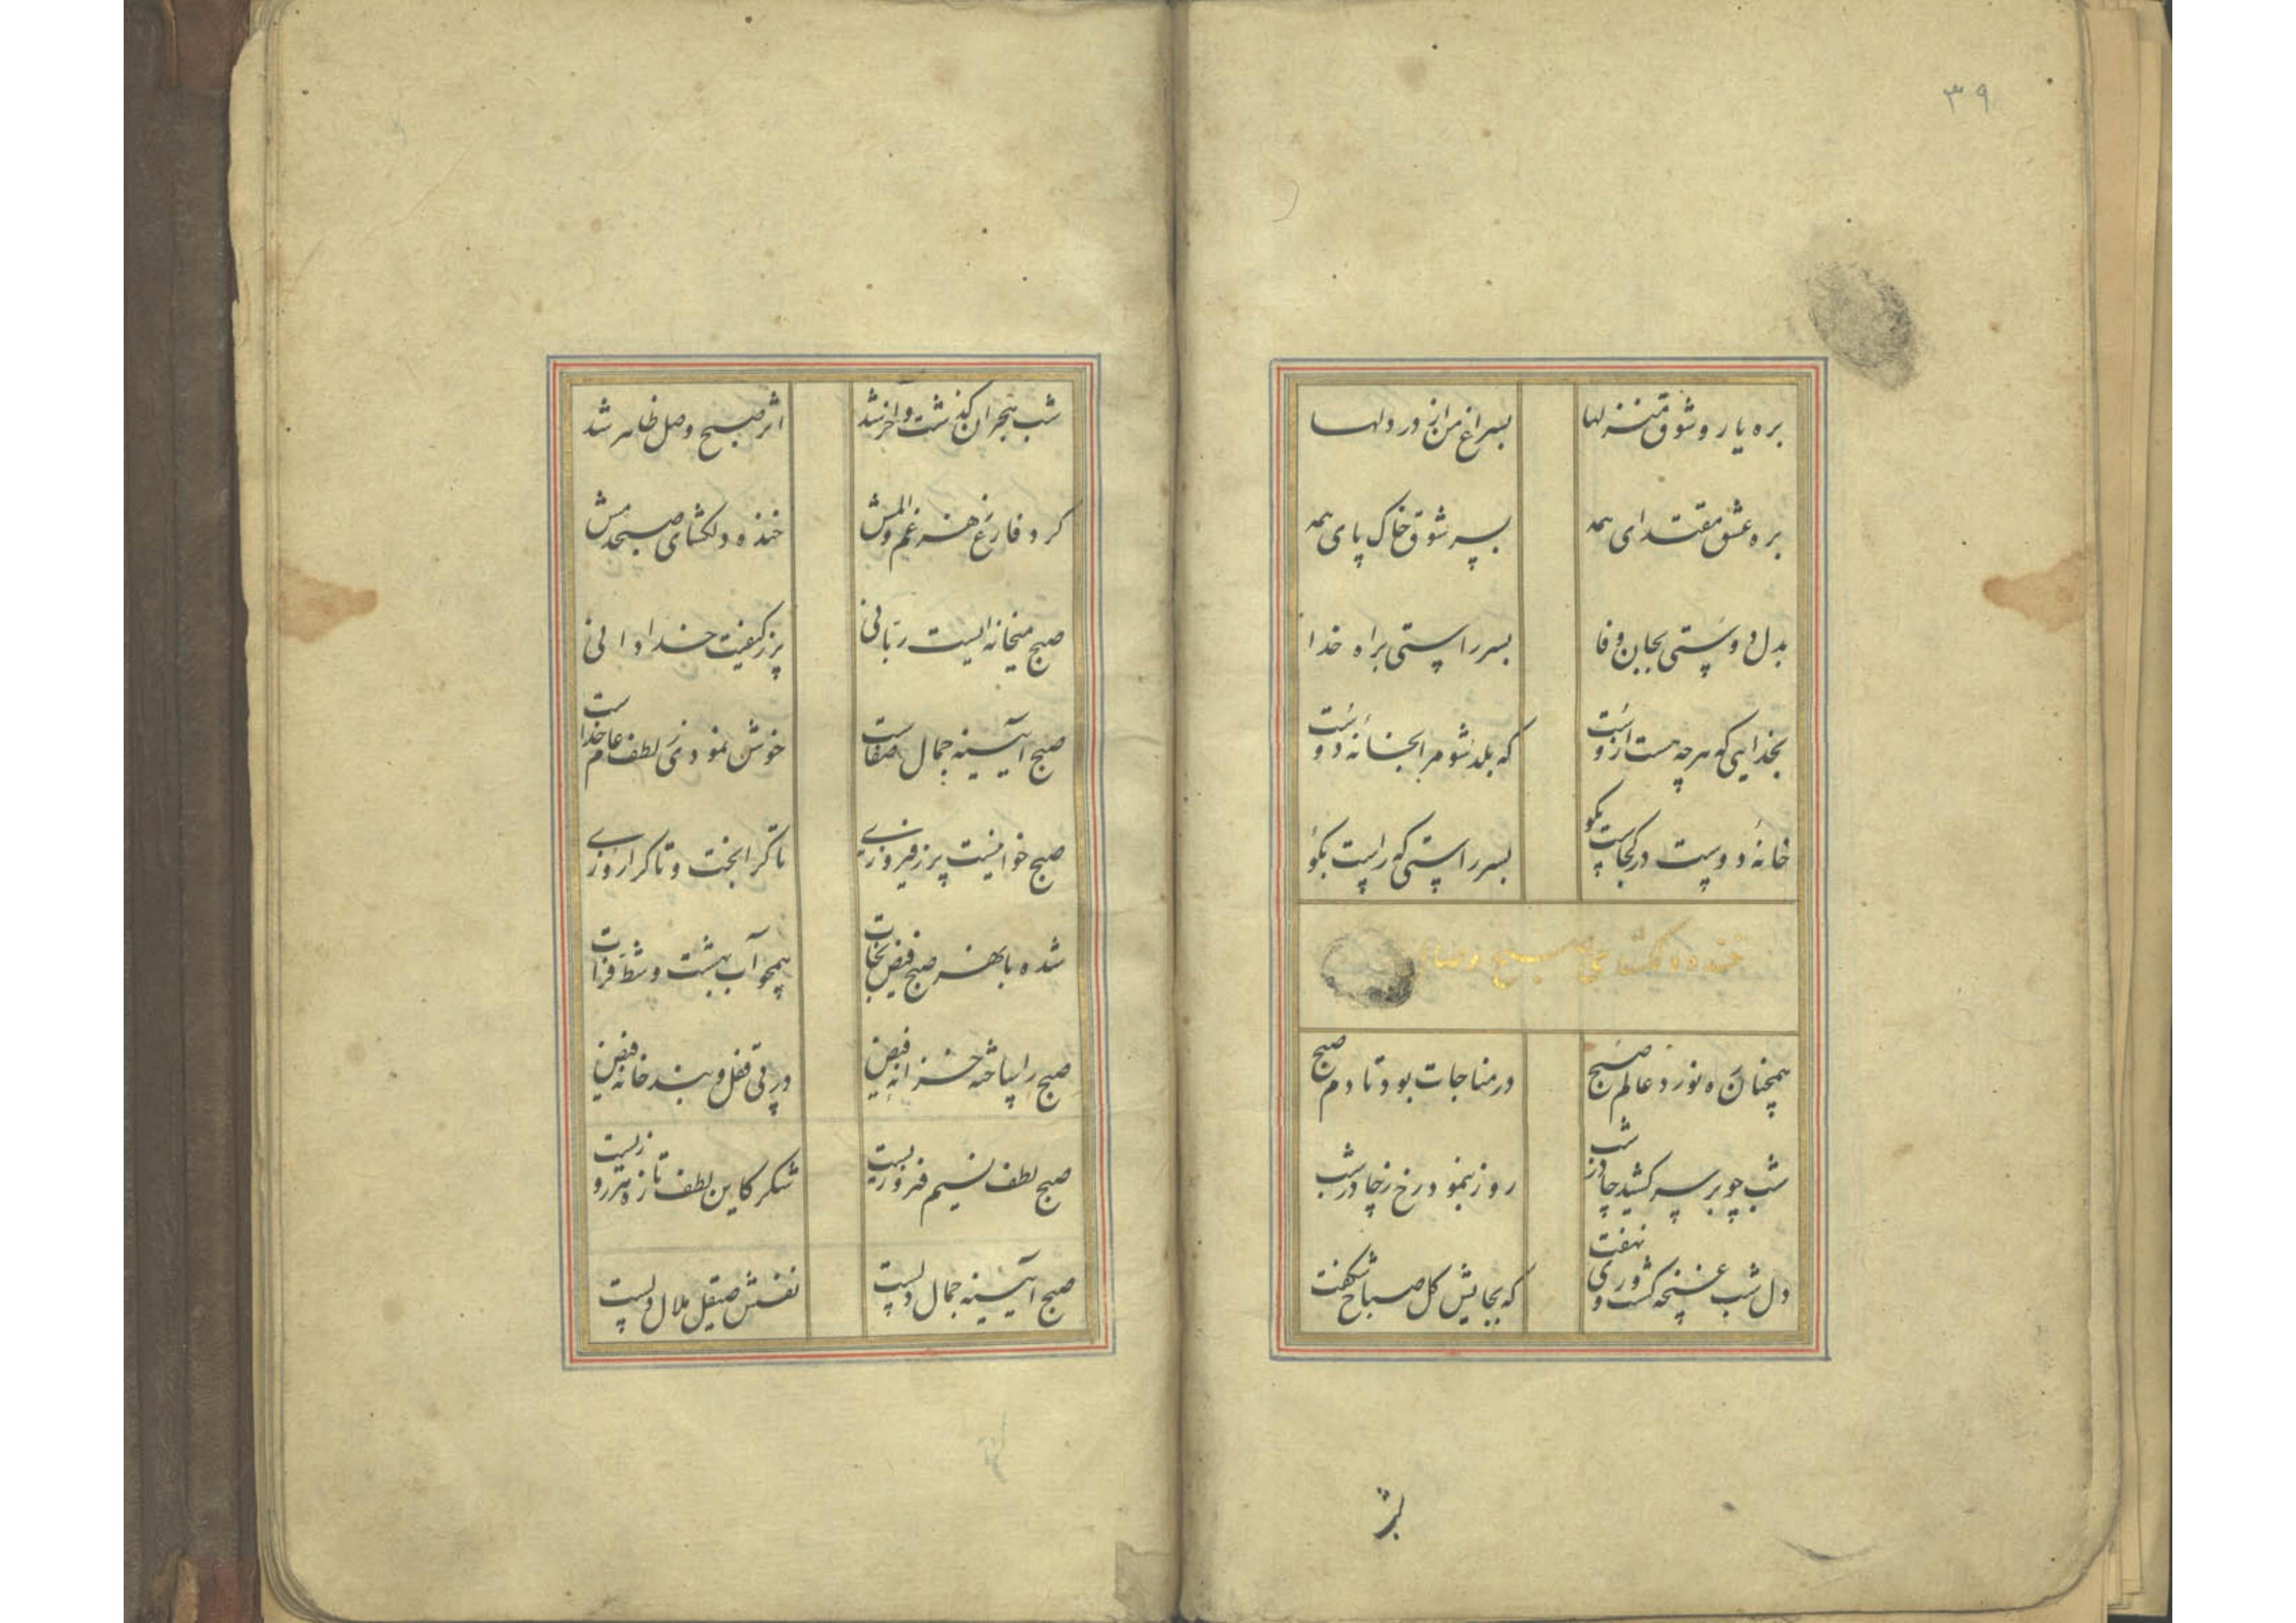 ۳۹
بره یار و شوق منزلها بسراغ من از در دلها
بره عشق مقتدای همه بسر شوق خاک پای همه
بدل دوستی بجان وفا بسر راستی براه خدا
بخدایی که هرچه هست ازوست که بلد شو مرا بخانهٔ دوست
خانهٔ دوست در کجاست بگو بسر راستی که راست بگو
خنده دلگشای صبح وصال
همچنان ره نورد عالم صبح در مناجات بود تا دم صبح
شب چو بر سر کشید چادر شب روز بنمود رخ ز چادر شب
دل شب غنچه گشت و روی نهفت که بجایش گل صباح شکفت
شب هجران گذشت و آخر شد اثر صبح وصل ظاهر شد
کرد فارغ ز هر غم و المش خندهٔ دلگشای صبحدمش
صبح میخانه ایست ربانی پر ز کیفیت خدادانی
صبح آیینه جمال صفاست خوش نمودی ز لطف عام خداست
صبح خوانیست پر ز فیروزی تا کرا بخت و تا کرا روزی
شده با نهر صبح فیض نجات همچو آب بهشت و شط فرات
صبح را ساخته خزانه فیض در بی قفل و بند خانه فیض
صبح لطف نسیم فروزیست شکر کاین لطف تازه هر روزیست
صبح آیینه جمال دلست نفسش صیقل ملال دلست